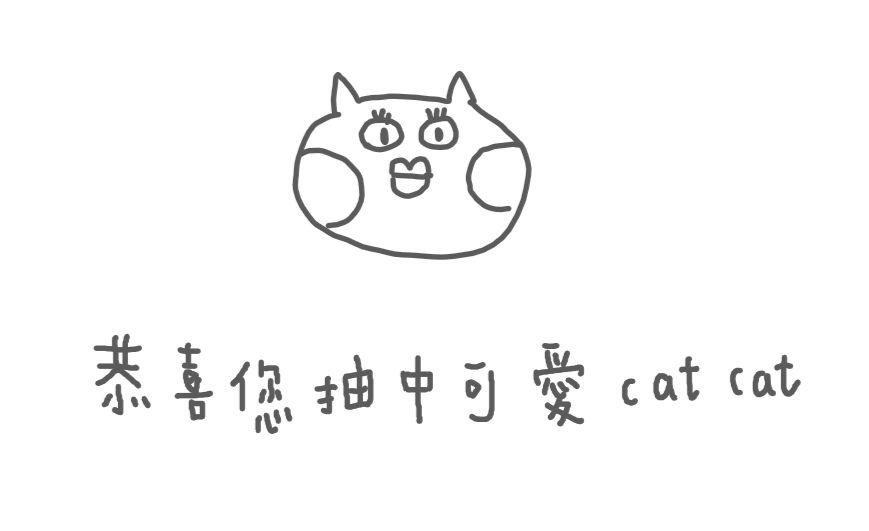 恭喜您抽中可愛cat cat